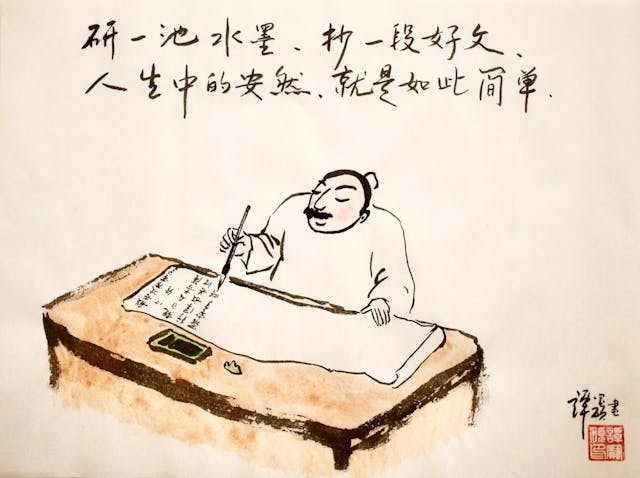 研一池水墨、抄一段好文、
人生中的安然、就是如此简单.